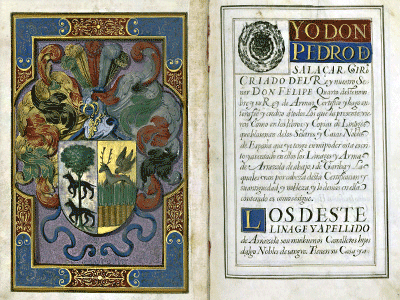 YO DON
PEDRO D
SALAÇAR. Girõ
CRIADO DEL Rey nuestro Se
ñor DON FELIPE Quarto deste nom
bre y su Rey de Armas Certifico y hago en
tera fee y credito a todos los que la presente vie
ren Como en los libros y Copias de Linajes
que blasonan de los Solares y Casas Nobles
de España que yo tengo en mi poder esta escri
to y asentado en ellos los Linajes y Armas
de Arnezola de abajo y de Garibay Los
quales van por cabeça desta Certificacion y
su antiguedad y nobleza y lo demas en ello
contenido es como se sigue
LOS DESTE
LINAGE Y APELLIDO
de Arnezola son muy buenos Cavalleros hijos
dalgo Nobles de sangre. Tienen su Casa y a